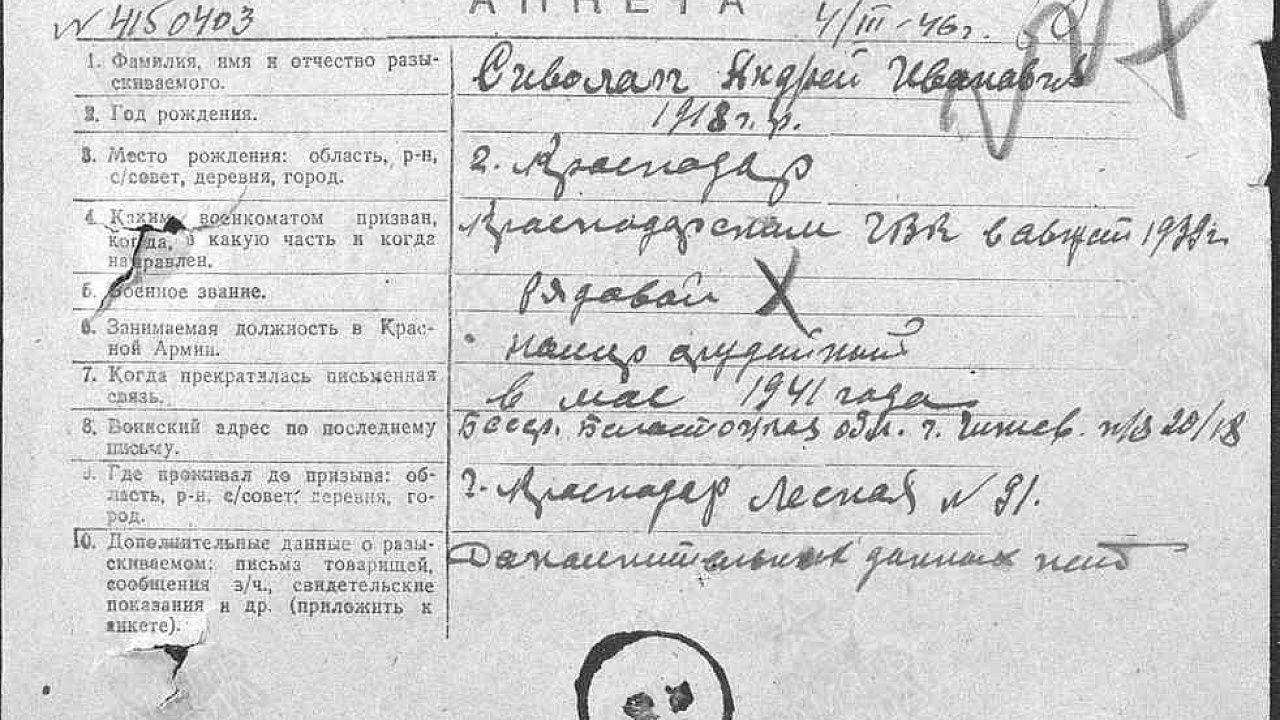 АНКЕТА
N 4150403
4/III-46г.
1. Фамилия, имя и отчество разы-
скиваемого.
Сиволап Андрей Иванович
2. Год рождения.
1918 г.р.
3. Место рождения: область, р-н,
с/совет, деревня, город.
г. Краснодар
4. Каким военкоматом призван,
когда, в какую часть и когда
направлен.
Краснодарским ГВК в август 1939г.
5. Военное звание.
рядовой
6. Занимаемая должность в Крас-
ной Армии.
орудийный
7. Когда прекратилась письменная
связь.
в мае 1941 года
8. Воинский адрес по последнему
письму.
Бсср. обл. г. Чижев. п/я 20/18
9. Где проживал до призыва: об-
ласть, р-н, с/совет, деревня, го-
род.
г. Краснодар Лесная N 91.
10. Дополнительные данные о разы-
скиваемом: письма товарищей,
сообщения з/ч., свидетельские
показания и др. (приложить к
анкете).
Дополнительных данных нет